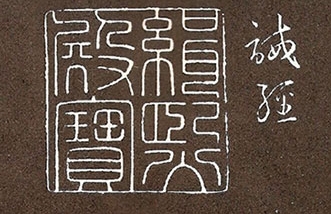 誠經
緝熙
殿寶